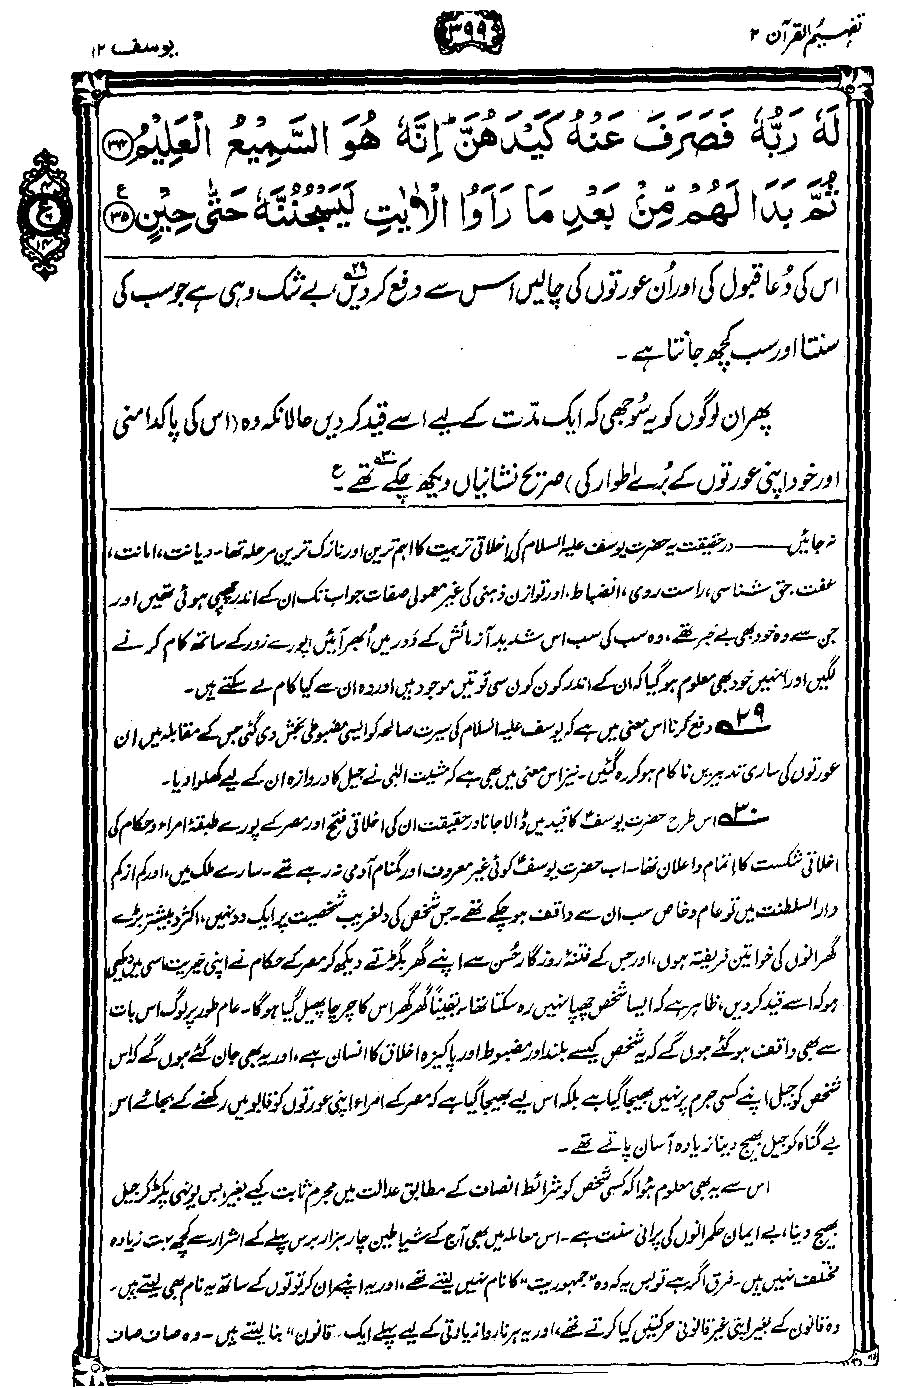 تفہیم القرآن ۲
۳۹۹
یوسف ۱۲
لَهٗ رَبُّهٗ فَصَرَفَ عَنْهُ كَيْدَهُنَّ ؕ اِنَّهٗ هُوَ السَّمِيْعُ الْعَلِيْمُ ﴿۳۴﴾
ثُمَّ بَدَا لَهُمْ مِّنْۢ بَعْدِ مَا رَاَوُا الْاٰيٰتِ لَيَسْجُنُنَّهٗ حَتّٰى حِيْنٍ ﴿۳۵﴾ ع
اس کی دُعا قبول کی اور اُن عورتوں کی چالیں اس سے دفع کر دیں ۲۹، بے شک وہی ہے جو سب کی
سنتا اور سب کچھ جانتا ہے۔
پھر ان لوگوں کو یہ سُوجھی کہ ایک مدّت کے لیے اسے قید کر دیں حالانکہ وہ (اس کی پاکدامنی
اور خود اپنی عورتوں کے بُرے اطوار کی) صریح نشانیاں دیکھ چکے تھے ۳۰۔ ع
نہ جائیں ــــــ درحقیقت یہ حضرت یوسف علیہ السلام کی اخلاقی تربیت کا اہم ترین اور نازک ترین مرحلہ تھا۔ دیانت، امانت،
عفت، حق شناسی، راست روی، انضباط، اور توازن ذہنی کی غیر معمولی صفات جو اب تک ان کے اندر چھپی ہوئی تھیں اور
جن سے وہ خود بھی بے خبر تھے، وہ سب کی سب اس شدید آزمائش کے دَور میں اُبھر آئیں، پورے زور کے ساتھ کام کرنے
لگیں اور انہیں خود بھی معلوم ہو گیا کہ ان کے اندر کون کون سی قوتیں موجود ہیں اور وہ ان سے کیا کام لے سکتے ہیں۔
۲۹ دفع کرنا اس معنی میں ہے کہ یوسف علیہ السلام کی سیرت صالحہ کو ایسی مضبوطی بخش دی گئی جس کے مقابلہ میں ان
عورتوں کی ساری تدبیریں ناکام ہو کر رہ گئیں۔ نیز اس معنی میں بھی ہے کہ مشیت الٰہی نے جیل کا دروازہ ان کے لیے کھلوا دیا۔
۳۰ اس طرح حضرت یوسفؑ کا قید میں ڈالا جانا درحقیقت ان کی اخلاقی فتح اور مصر کے پورے طبقۂ امراء و حکام کی
اخلاقی شکست کا اتمام و اعلان تھا۔ اب حضرت یوسفؑ کوئی غیر معروف اور گمنام آدمی نہ رہے تھے۔ سارے ملک میں، اور کم از کم
دارالسلطنت میں تو عام و خاص سب ان سے واقف ہو چکے تھے۔ جس شخص کی دلفریب شخصیت پر ایک دو نہیں، اکثر و بیشتر بڑے
گھرانوں کی خواتین فریفتہ ہوں، اور جس کے فتنۂ روزگار حُسن سے اپنے گھر بگڑتے دیکھ کر مصر کے حکام نے اپنی خیریت اسی میں دیکھی
ہو کہ اسے قید کر دیں، ظاہر ہے کہ ایسا شخص چھپا نہیں رہ سکتا تھا۔ یقیناً گھر گھر اس کا چرچا پھیل گیا ہوگا۔ عام طور پر لوگ اس بات
سے بھی واقف ہو گئے ہوں گے کہ یہ شخص کیسے بلند اور مضبوط اور پاکیزہ اخلاق کا انسان ہے، اور یہ بھی جان گئے ہوں گے کہ اس
شخص کو جیل اپنے کسی جرم پر نہیں بھیجا گیا ہے بلکہ اس لیے بھیجا گیا ہے کہ مصر کے امراء اپنی عورتوں کو قابو میں رکھنے کے بجائے اس
بے گناہ کو جیل بھیج دینا زیادہ آسان پاتے تھے۔
اس سے یہ بھی معلوم ہوا کہ کسی شخص کو شرائط انصاف کے مطابق عدالت میں مجرم ثابت کیے بغیر بس یونہی پکڑ کر جیل
بھیج دینا، بے ایمان حکمرانوں کی پرانی سنت ہے۔ اس معاملہ میں بھی آج کے شیاطین چار ہزار برس پہلے کے اشرار سے کچھ بہت زیادہ
مختلف نہیں ہیں۔ فرق اگر ہے تو بس یہ کہ وہ "جمہوریت" کا نام نہیں لیتے تھے، اور یہ اپنے ان کرتوتوں کے ساتھ یہ نام بھی لیتے ہیں۔
وہ قانون کے بغیر اپنی غیر قانونی حرکتیں کیا کرتے تھے، اور یہ ہر ناروا زیادتی کے لیے پہلے ایک "قانون" بنا لیتے ہیں۔ وہ صاف صاف